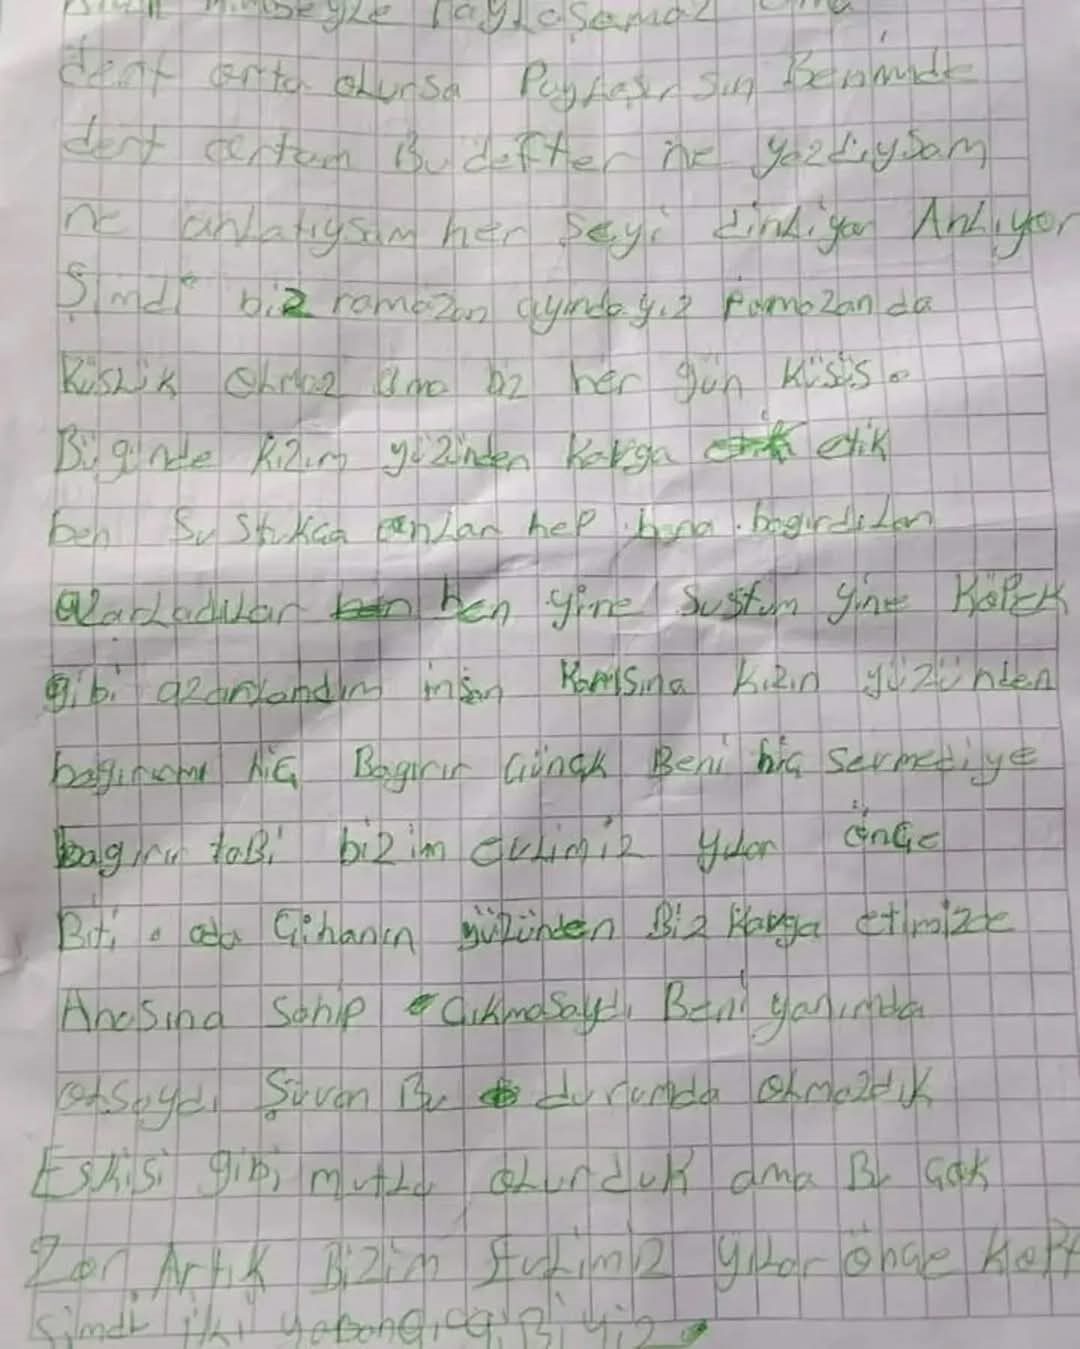 dert orta olursa Paylaşırsın Benimde
dert ortam Bu defter ne yazdıysam
ne anlatıysam her şeyi dinliyor Anlıyor
Şimdi biz ramazan ayındayız Ramazanda
Küslük Olmaz ama biz her gün Küsüs.
Bügünde Kızım yüzünden Kavga etik
ben Sustukça onlar hep bana bağırdılar
azarladılar ben yine Sustum yine Köpek
gibi azarlandım insan Karısına Kızın yüzünden
bağırırmı hiç Bağırır Günçk Beni hiç sevmediye
bağırır taBi bizim evlimiz yılar önçe
Biti. oda Cihanın yüzünden Biz Kavga etimizde
Anasına Sahip Çıkmasaydı Beni yanımda
olsaydı Şuvan Bu durumda olmazdık
Eskisi gibi mutlu olurduk ama Bu çok
Zor Artık Bizim Evlimiz yılar önçe
Şimdi iki yabançıgiBiyiz.